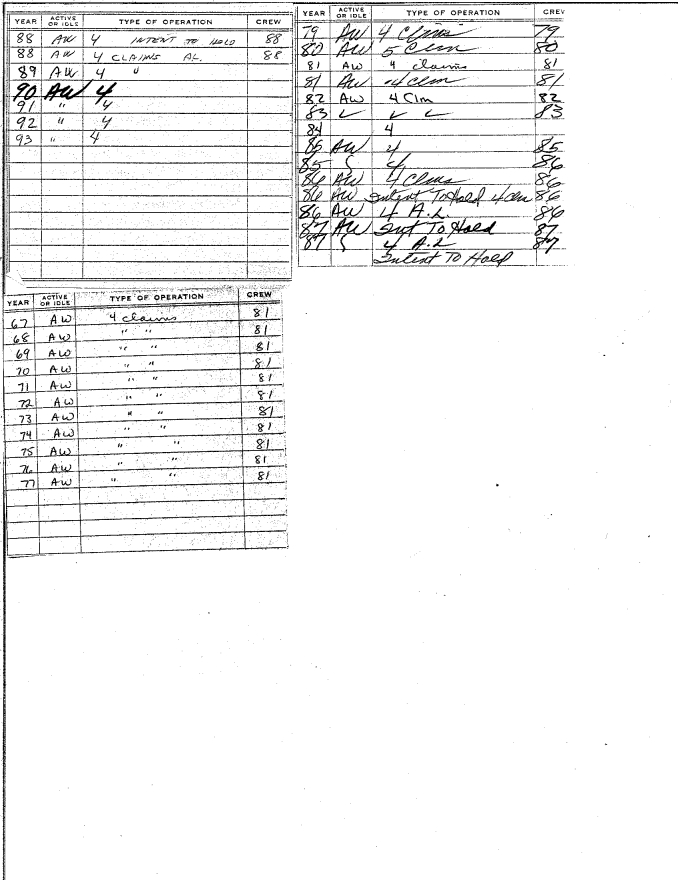 YEAR ACTIVE OR IDLE TYPE OF OPERATION CREW
88 AW 4 INTENT TO HOLD 88
88 AW 4 CLAIMS AL. 88
89 AW 4 "
90 AW 4
91 " 4
92 " 4
93 " 4
YEAR ACTIVE OR IDLE TYPE OF OPERATION CREV
79 AW 4 Clms 79
80 AW 5 Clm 80
81 AW 4 claims 81
81 AW 4 clm 81
82 AW 4 Clm 82
83 ✓ ✓ ✓ 83
84 4
85 AW 4 85
85 4 86
86 AW 4 Clms 86
86 AW Intent To Hold 4 clm 86
86 AW 4 A.L. 86
87 AW Int To Hold 87
87 4 A.L 87
Intent To Hold
YEAR ACTIVE OR IDLE TYPE OF OPERATION CREW
67 AW 4 claims 81
68 AW " " 81
69 AW " " 81
70 AW " " 81
71 AW " " 81
72 AW " " 81
73 AW " " 81
74 AW " " 81
75 AW " " 81
76 AW " " 81
77 AW " " 81